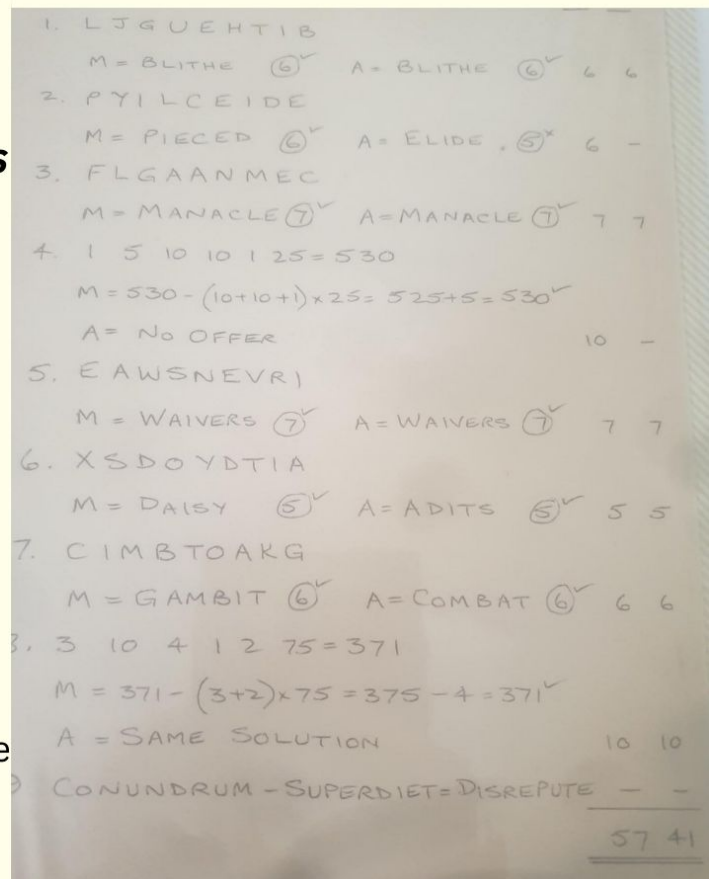 1. LJGUEHTIB
M = BLITHE 6✓ A = BLITHE 6✓ 6 6
2. PYILCEIDE
M = PIECED 6✓ A = ELIDE . 5× 6 -
s
3. FLGAANMEC
M = MANACLE 7✓ A = MANACLE 7✓ 7 7
4. 1 5 10 10 1 25 = 530
M = 530 - (10+10+1)×25 = 525+5 = 530✓
A = NO OFFER 10 -
5. EAWSNEVRI
M = WAIVERS 7✓ A = WAIVERS 7✓ 7 7
6. XSDOYDTIA
M = DAISY 5✓ A = ADITS 5✓ 5 5
7. CIMBTOAKG
M = GAMBIT 6✓ A = COMBAT 6✓ 6 6
3. 3 10 4 1 2 75 = 371
M = 371 - (3+2)×75 = 375 - 4 = 371✓
e
A = SAME SOLUTION 10 10
CONUNDRUM - SUPERDIET = DISREPUTE - -
57 41